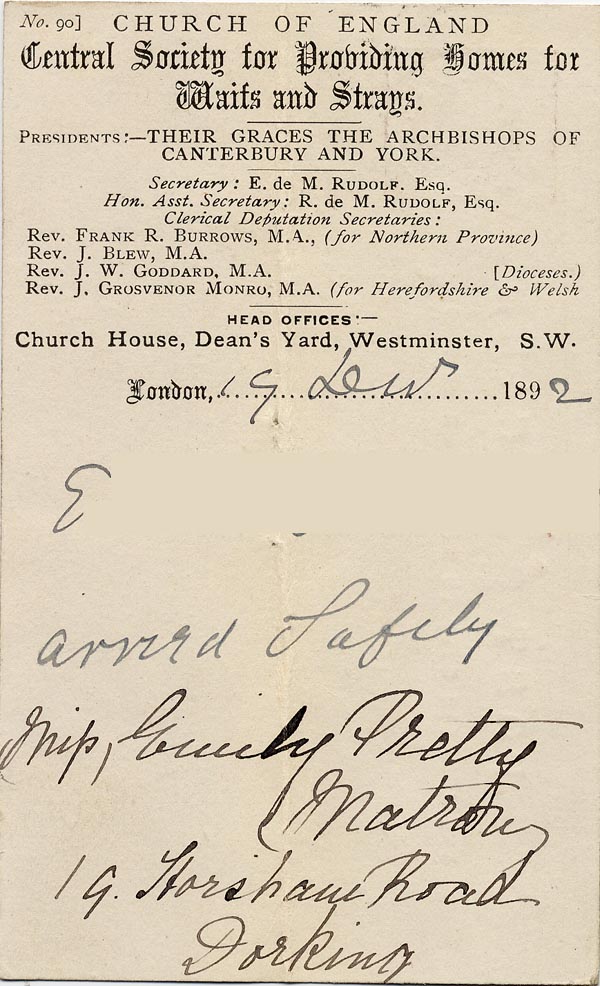 No. 90] CHURCH OF ENGLAND
Central Society for Providing Homes for
Waifs and Strays.
PRESIDENTS:—THEIR GRACES THE ARCHBISHOPS OF
CANTERBURY AND YORK.
Secretary: E. de M. RUDOLF. Esq.
Hon. Asst. Secretary: R. de M. RUDOLF, Esq.
Clerical Deputation Secretaries:
Rev. FRANK R. BURROWS, M.A., (for Northern Province)
Rev. J. BLEW, M.A.
Rev. J. W. GODDARD, M.A. [Dioceses.)
Rev. J. GROSVENOR MONRO, M.A. (for Herefordshire & Welsh
HEAD OFFICES:—
Church House, Dean's Yard, Westminster, S.W.
London, 19 1892
E
arrived Safely
Miss, Emily Pretty
Matron
19. Horsham Road
Dorking